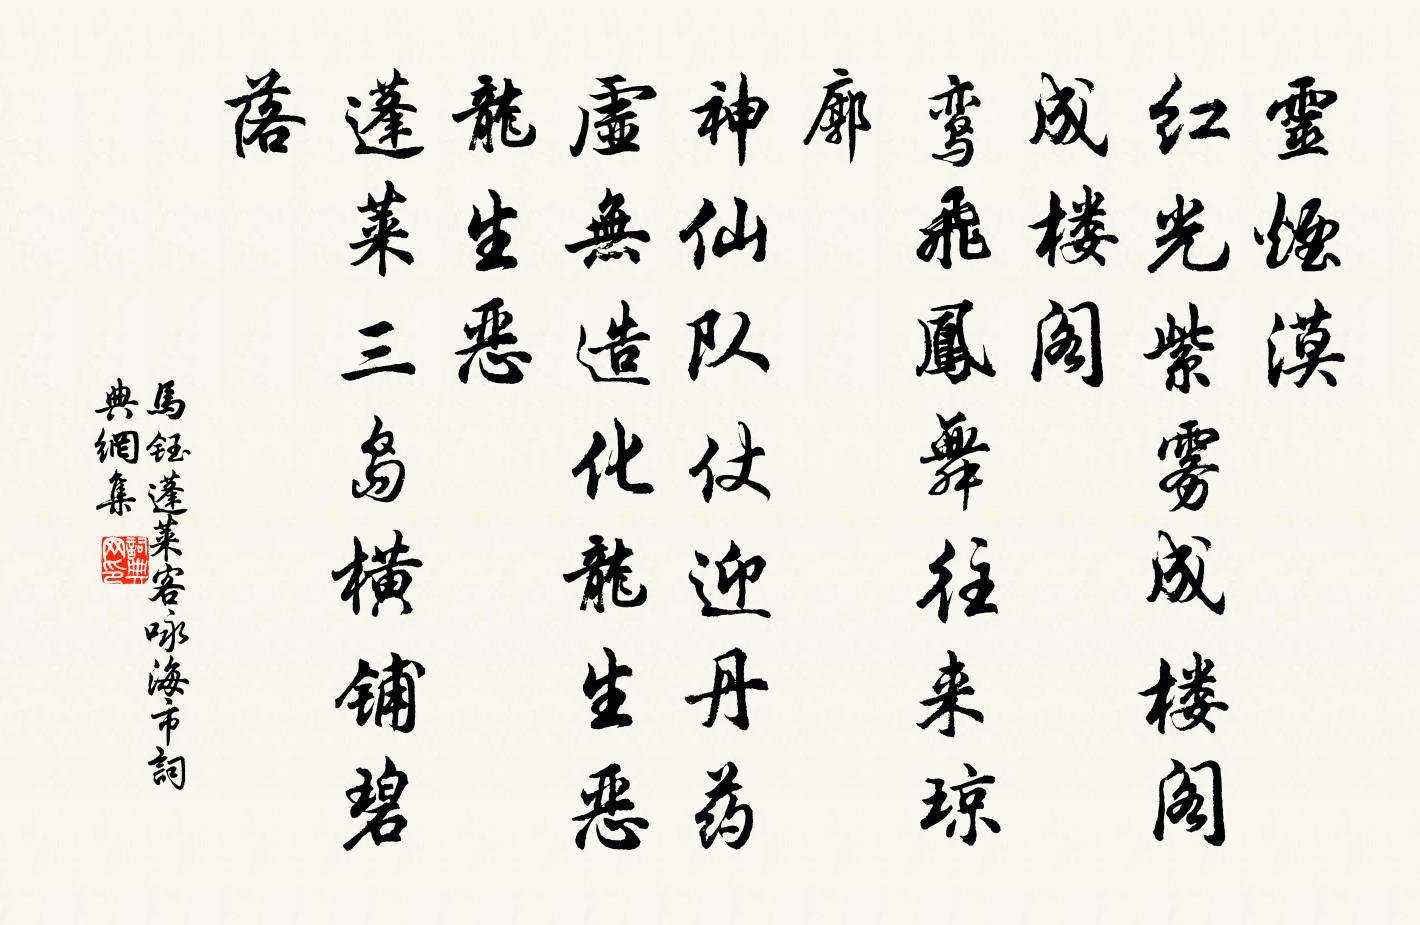 靈煙漠
红光紫雾成楼阁
成楼阁
鸾飛鳳舞往来琼
廓
神仙队仗迎丹药
虛無造化龍生恶
龍生恶
蓬莱三岛横铺碧
落
馬鈺蓬莱客咏海市詞
典網集
詞典
网印